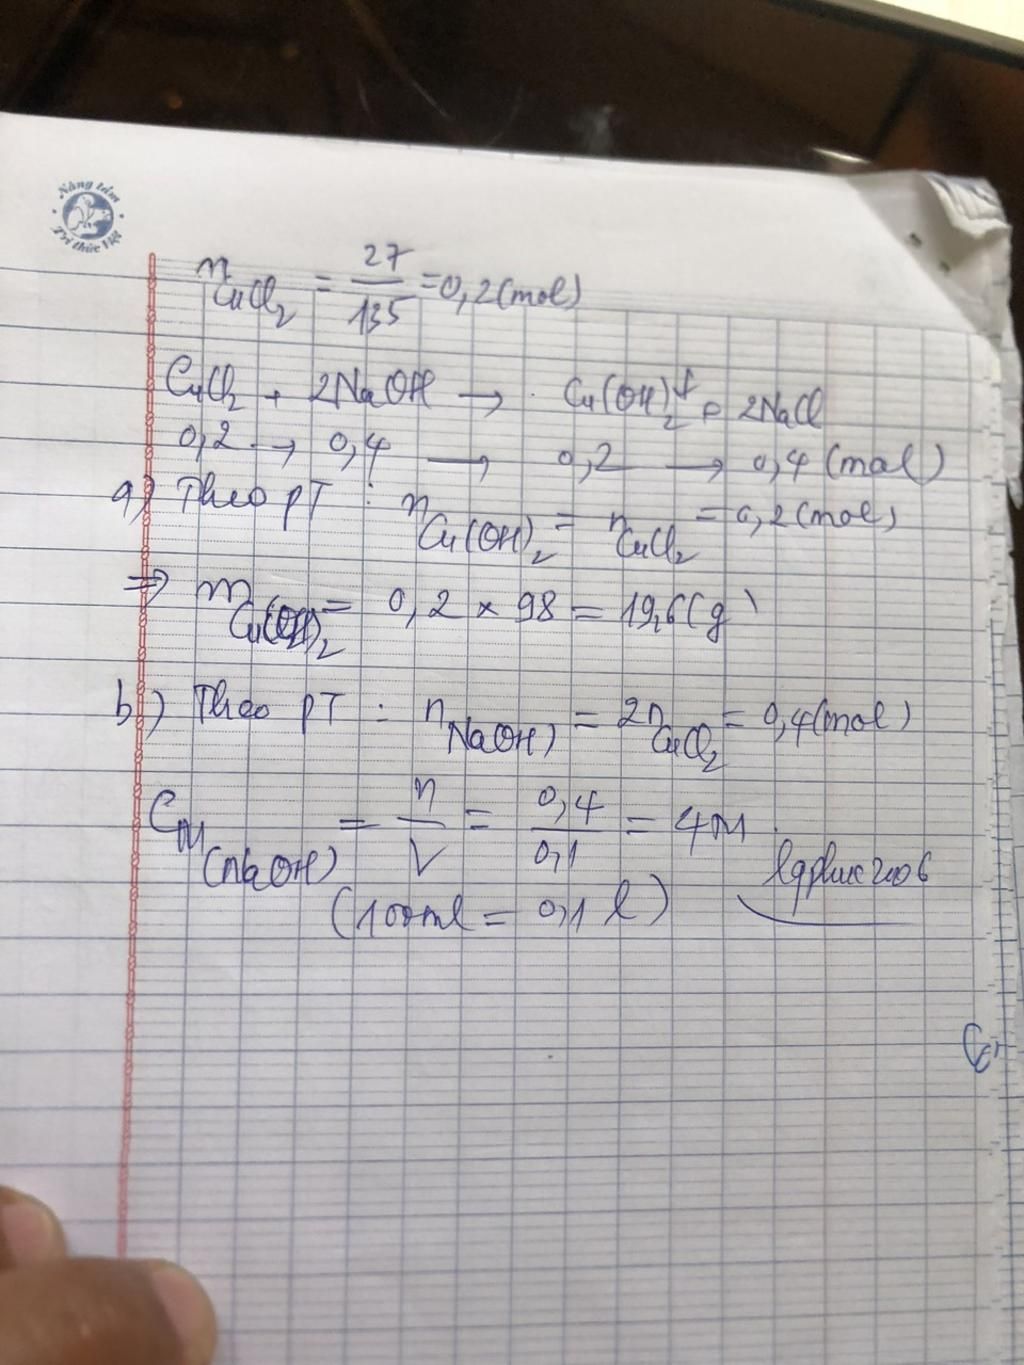 Nâng tầm
Trí thức Việt
nCuCl2 = 27/135 = 0,2(mol)
CuCl2 + 2NaOH → Cu(OH)2↓ + 2NaCl
0,2 → 0,4 → 0,2 → 0,4 (mol)
a) Theo PT : nCu(OH)2 = nCuCl2 = 0,2(mol)
⇒ mCu(OH)2 = 0,2 × 98 = 19,6(g)
b) Theo PT : nNaOH) = 2nCuCl2 = 0,4(mol)
CM(NaOH) = n/V = 0,4/0,1 = 4M
(100ml = 0,1 l)